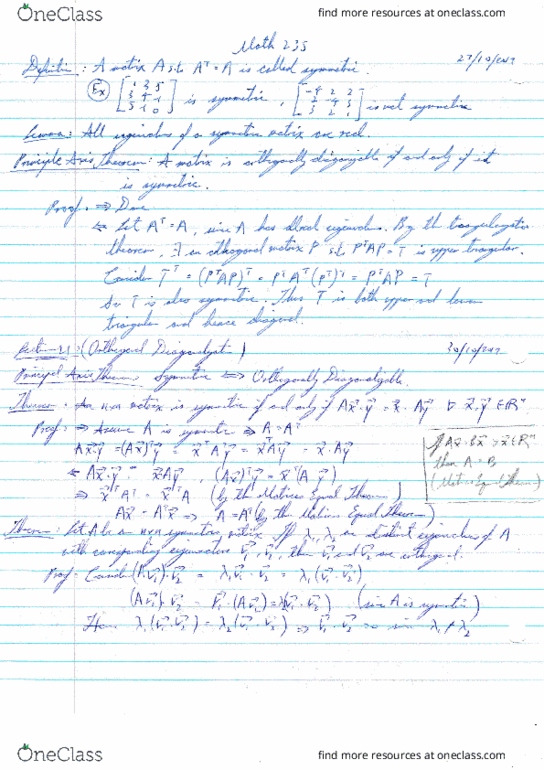 OneClass
find more resources at oneclass.com
Math 235
27/10/2017
Definition: A matrix A s.t. Aᵀ = A is called symmetric.
Ex [1 3 5; 3 4 -1; 5 -1 0] is symmetric, is not symmetric
Lemma: All eigenvalues of a symmetric matrix are real.
Principle Axis Theorem: A matrix is orthogonally diagonizable if and only if it
is symmetric.
Proof: ⇒ Done
⇐ Let Aᵀ = A, since A has all real eigenvalues. By the triangularization
theorem, ∃ an orthogonal matrix P s.t. PᵀAP = T is upper triangular.
Consider Tᵀ = (PᵀAP)ᵀ = PᵀAᵀ(Pᵀ)ᵀ = PᵀAP = T
So T is also symmetric. Thus T is both upper and lower
triangular and hence diagonal.
(Orthogonal Diagonalization)
30/10/2017
Principal Axis Theorem: Symmetric ⟺ Orthogonally Diagonalizable.
Theorem: An n×n matrix is symmetric if and only if Ax⃗·y⃗ = x⃗·Ay⃗ ∀ x⃗, y⃗ ∈ Rⁿ
Proof: ⇒ Assume A is symmetric ⇒ A = Aᵀ
Ax⃗·y⃗ = (Ax⃗)ᵀy⃗ = x⃗ᵀAᵀy⃗ = x⃗ᵀAy⃗ = x⃗·Ay⃗
⇐ Ax⃗·y⃗ = x⃗·Ay⃗, (Ax⃗)ᵀy⃗ = x⃗ᵀ(Ay⃗)
⇒ x⃗ᵀAᵀ = x⃗ᵀA (by the Matrices Equal Theorem)
Ax⃗ = Aᵀx⃗ ⇒ A = Aᵀ (by the Matrices Equal Theorem)
If Ax⃗ = Bx⃗ ∀ x⃗ ∈ Rⁿ
then A = B
(Matrices Equal Theorem)
Theorem: Let A be an n×n symmetric matrix. If λ₁, λ₂ are distinct eigenvalues of A
with corresponding eigenvectors v⃗₁, v⃗₂, then v⃗₁ and v⃗₂ are orthogonal.
Proof: Consider (Av⃗₁)·v⃗₂ = λ₁v⃗₁·v⃗₂ = λ₁(v⃗₁·v⃗₂)
(Av⃗₁)·v⃗₂ = v⃗₁·(Av⃗₂) = λ₂(v⃗₁·v⃗₂) (since A is symmetric)
Hence λ₁(v⃗₁·v⃗₂) = λ₂(v⃗₁·v⃗₂) ⇒ v⃗₁·v⃗₂ = 0 since λ₁ ≠ λ₂
OneClass
find more resources at oneclass.com